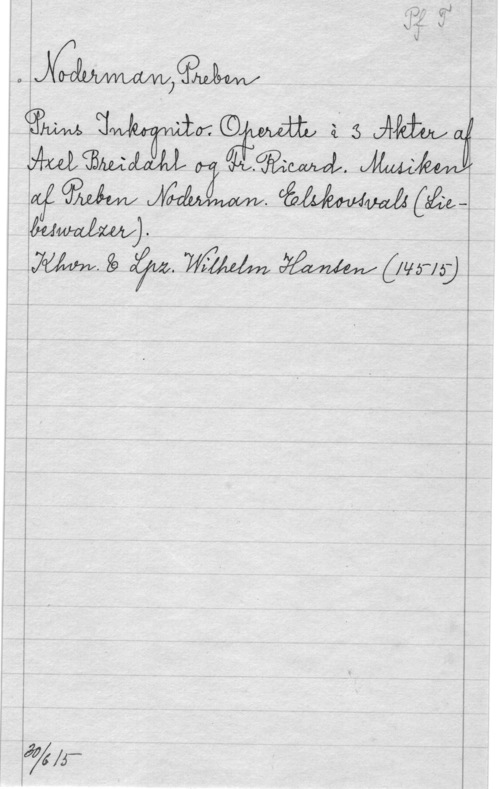 Pf T
Noderman, Preben
Prins Inkognito. Operette i 3 Akter af
Axel Breidahl og Fr. Ricard. Musiken
af Preben Noderman. Elskovsvals (Lie-
beswalzer).
Khvn. & Lpz. Wilhelm Hansen (14515)
30/6 15